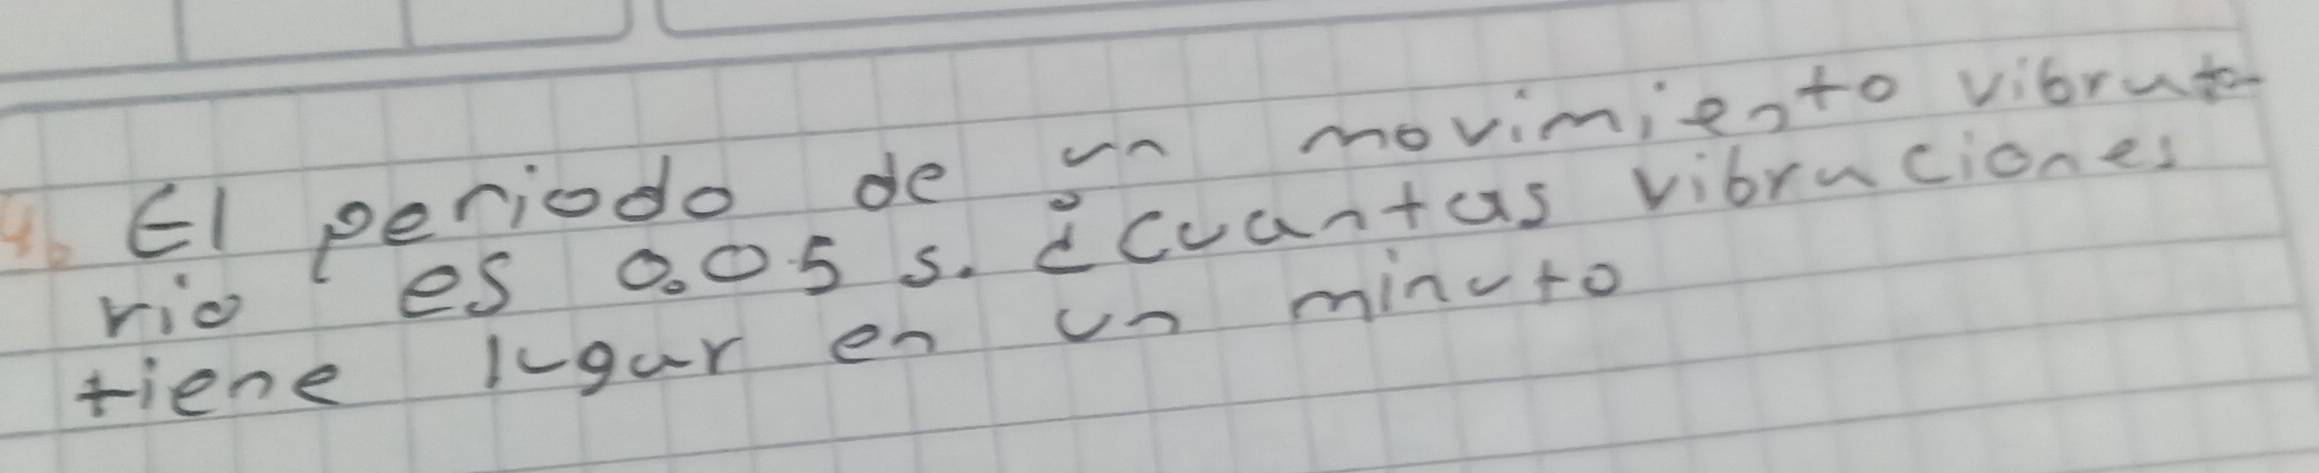 4. El periodo de un movimiento vibrato-
rio es 0.05 s. ¿Cuantas vibraciones
tiene lugar en un minuto